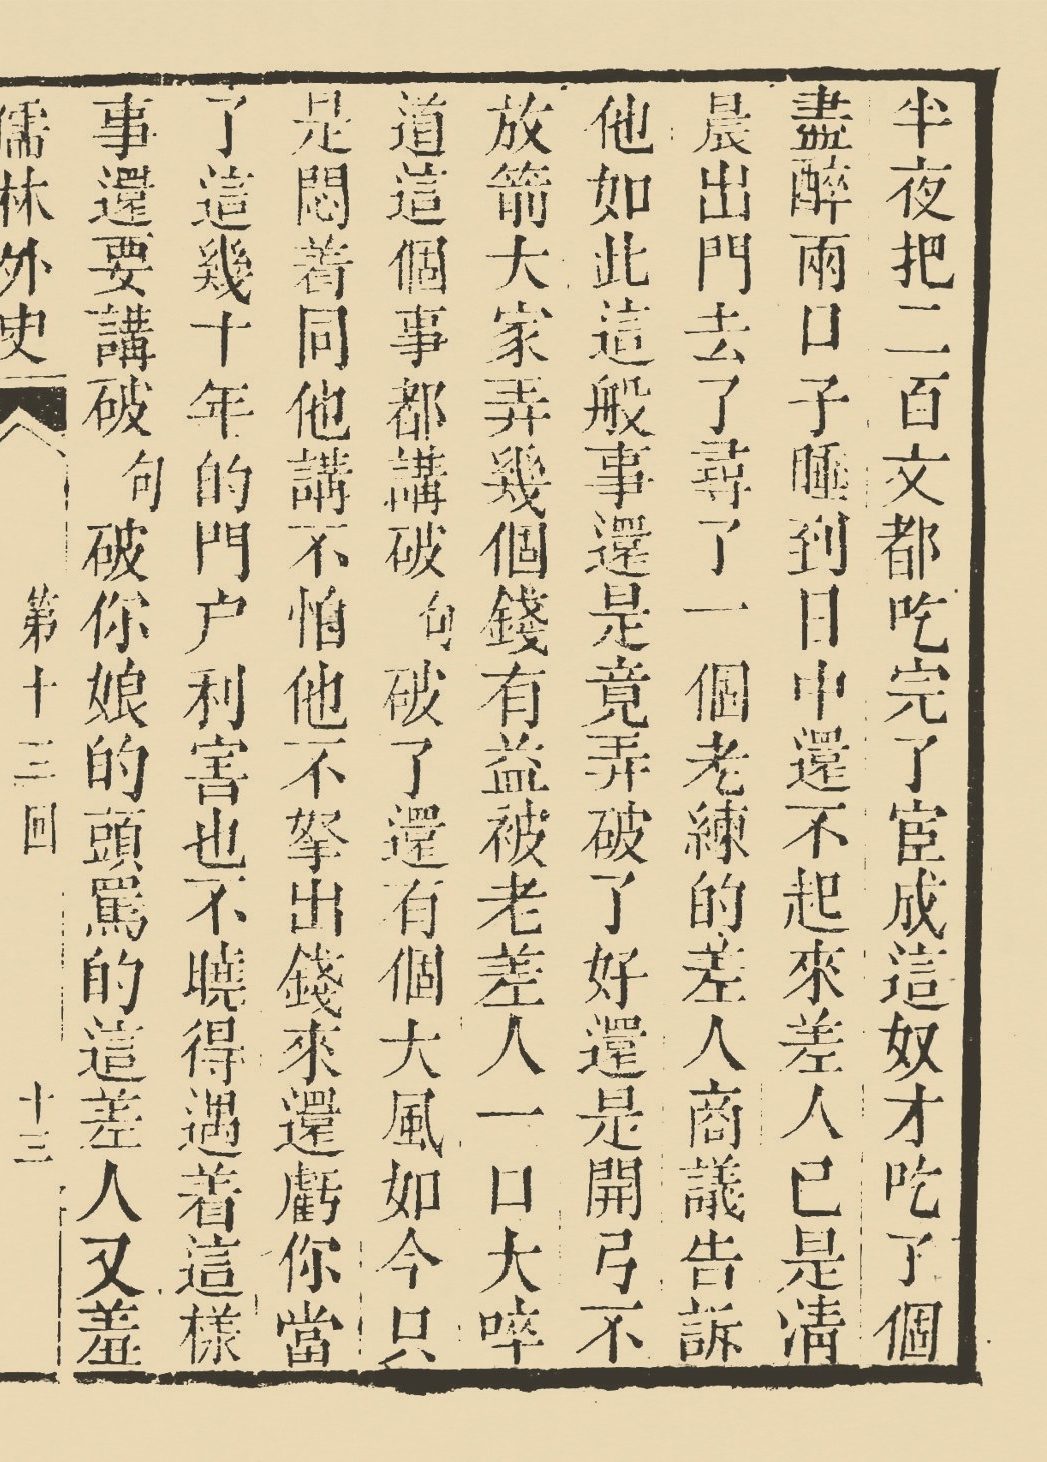 半夜把二百文都吃完了宦成這奴才吃了個
盡醉兩口子睡到日中還不起來差人已是清
晨出門去了尋了一個老練的差人商議告訴
他如此這般事還是竟弄破了好還是開弓不
放箭大家弄幾個錢有益被老差人一口大啐
道這個事都講破句破了還有個大風如今只
是悶着同他講不怕他不拏出錢來還虧你當
了這幾十年的門户利害也不曉得遇着這樣
事還要講破句破你娘的頭罵的這差人又羞
儒林外史 第十三回 十三